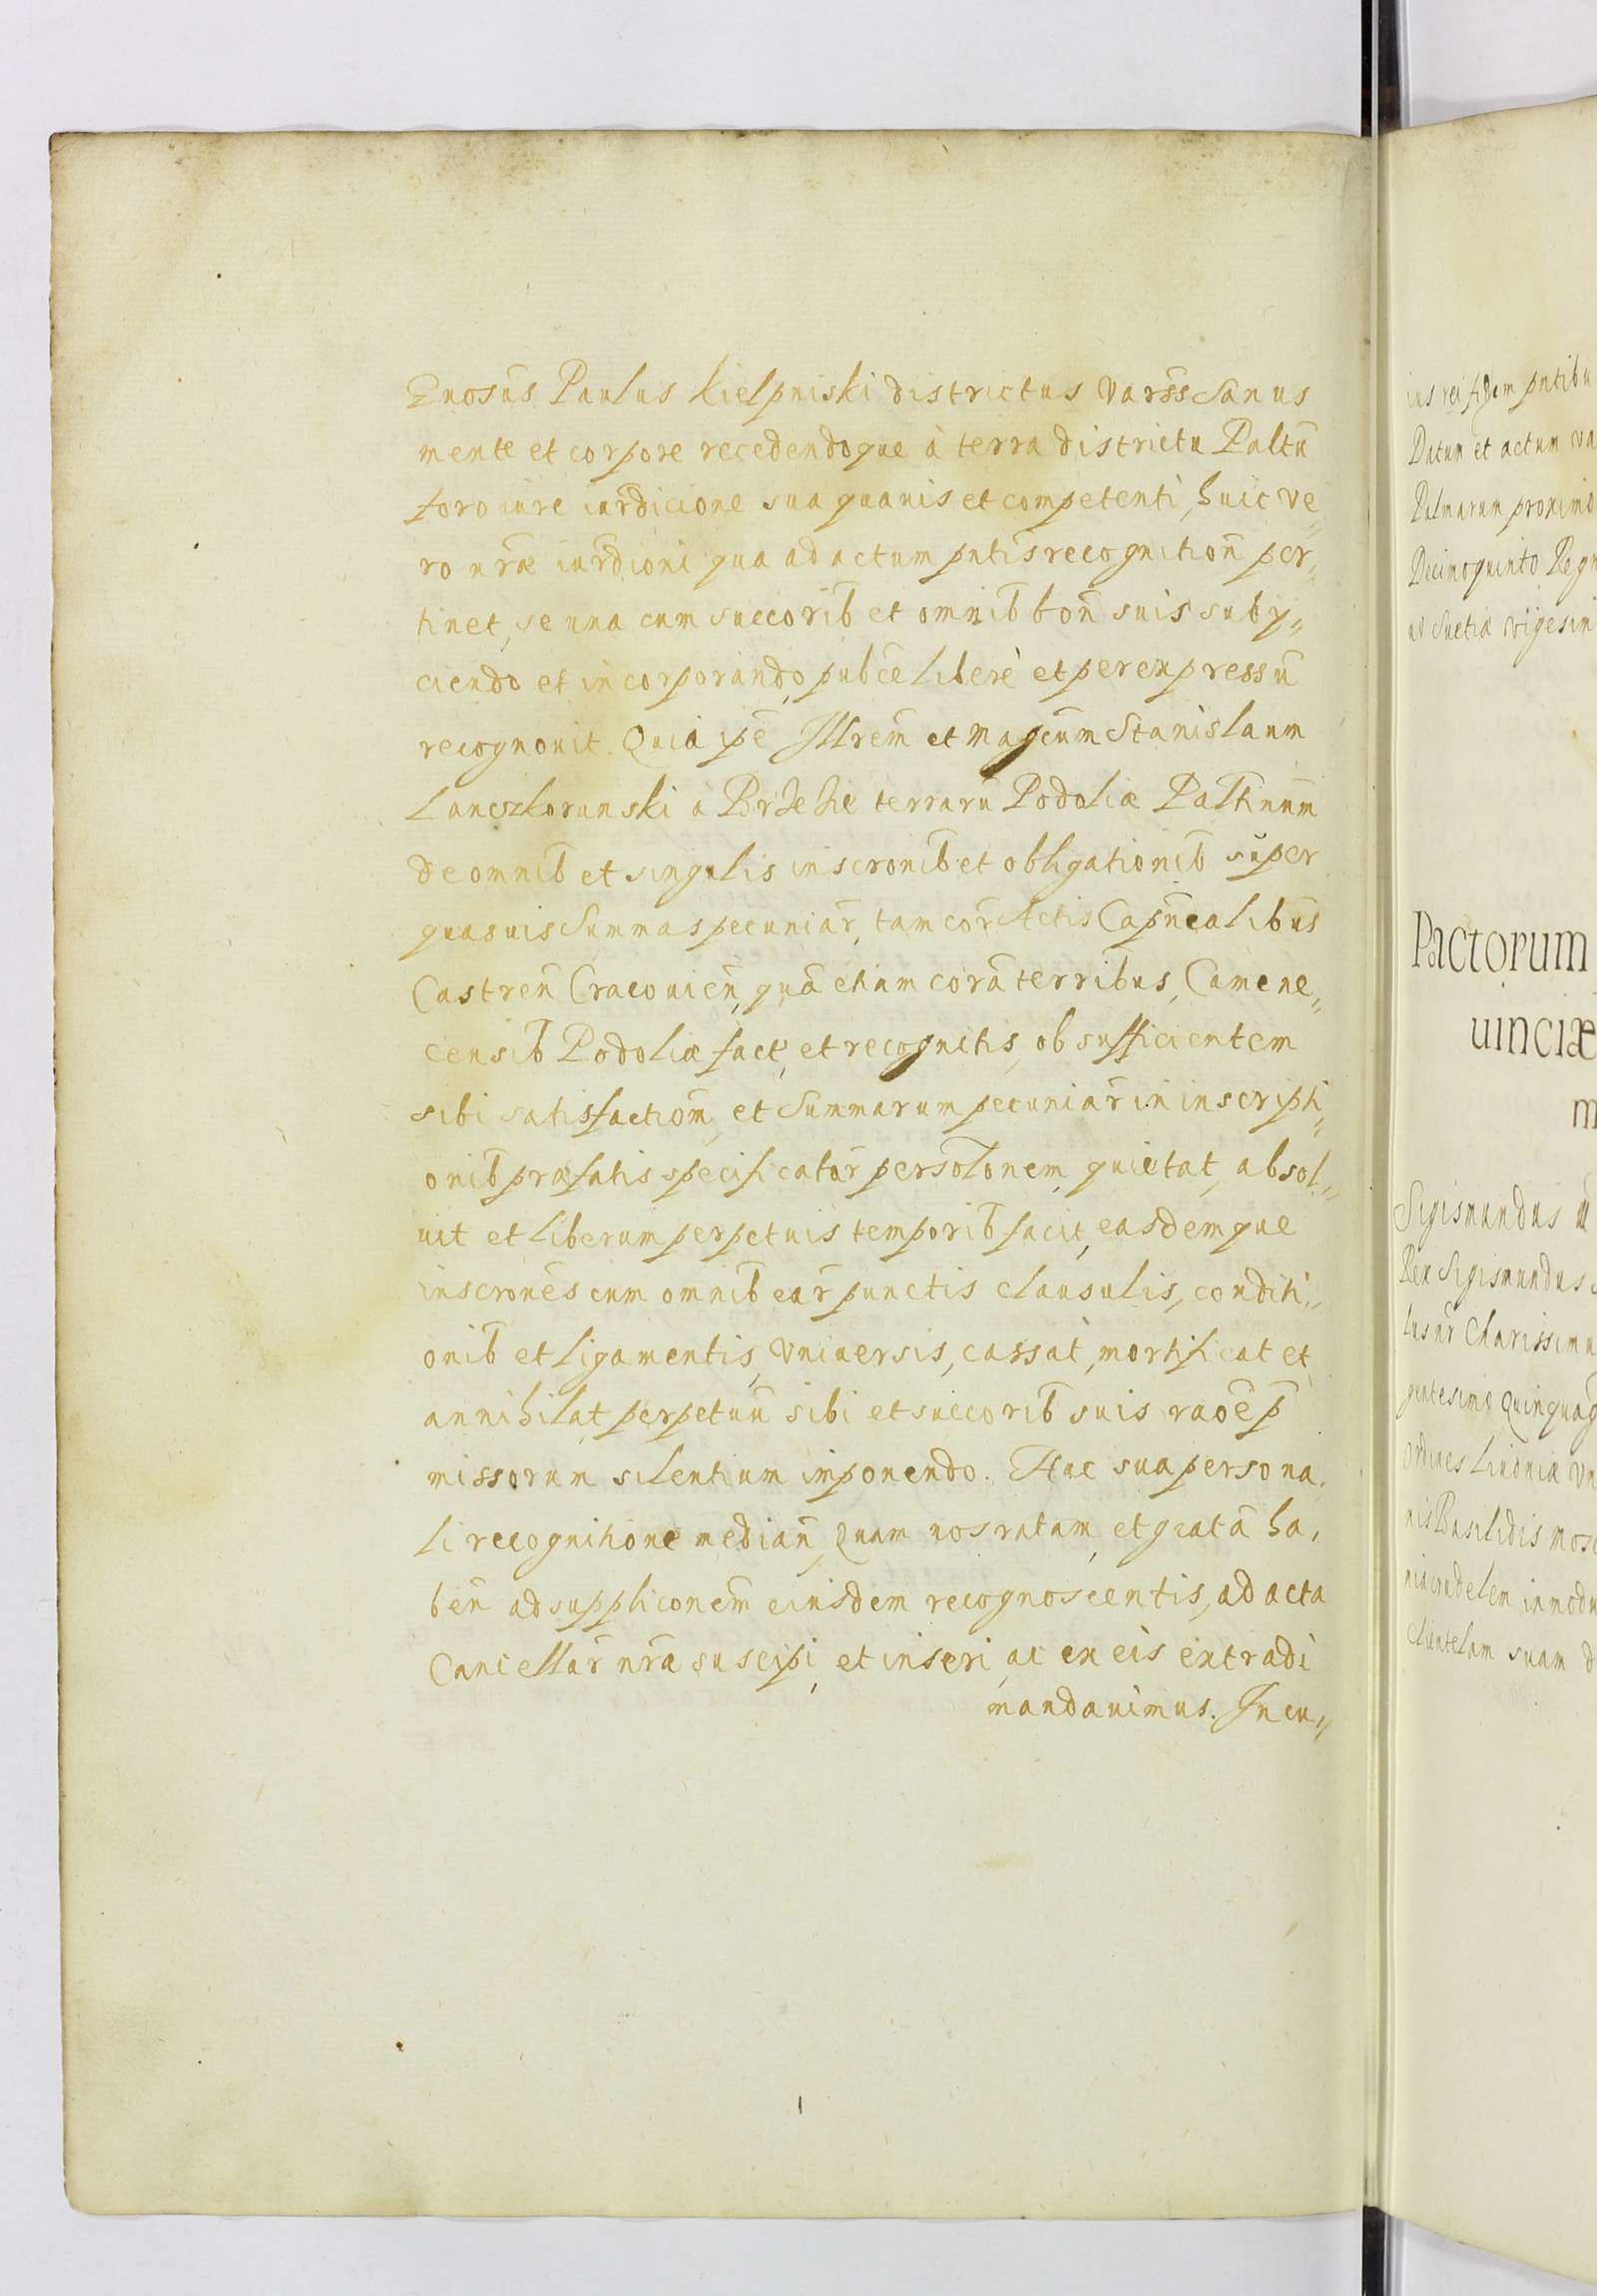 Gnosus Paulus Kielpniski districtus Varss Sanus
mente et corpore recedendoque à terra districtu Paltu
foro iure iurdicione sua quauis et competenti, huic ve„
ro nrae iurdioni qua ad actum pntis recognition per„
tinet, se una cum succorib et omnib bon suis subij„
ciendo et incorporando, pubce liberè et per expressu
recognouit. Quia ipe Illrem et Magcum Stanislaum
Lanczkorunski a Brzezie terraru Podoliæ Paltinum
de omnib et singulis inscronib et obligationib super
quasuis Summas pecuniar, tam cor Actis Capnealibus
Castren Cracouien, quā etiam corā terribus, Camene„
censib Podoliæ fact, et recognitis, ob sufficientem
sibi satisfactiom, et Summarum pecuniar in inscripti„
onib præfatis specificatar persolonem, quietat, absol„
uit et liberum perpetuis temporib facit, easdemque
inscrones cum omnib ear punctis clausulis, conditi„
onib et ligamentis, Vniuersis, cassat, mortificat et
annihilat, perpetuū sibi et succorib suis raoe p
missorum silentium imponendo. Hac sua persona.
li recognitione median, Quam nos ratam, et gratā ha,
ben ad suppliconem eiusdem recognoscentis, ad acta
Cancellar nra suscipi, et inseri, ac ex eis extradi
mandauimus. In cu„
ius rei fidem pntibu
Datum et actum va
Palmarum proximo
Decimoquinto Regn
Suetiæ vigesim
Pactorum
uinciæ
m
Sigismundus
Rex Sigismundus
Charissimu
gentesimo Quinquag
Ordines Liuoniæ Vn
nis Basilidis Mosc
crudelem inmodu
Cluntelam suam d